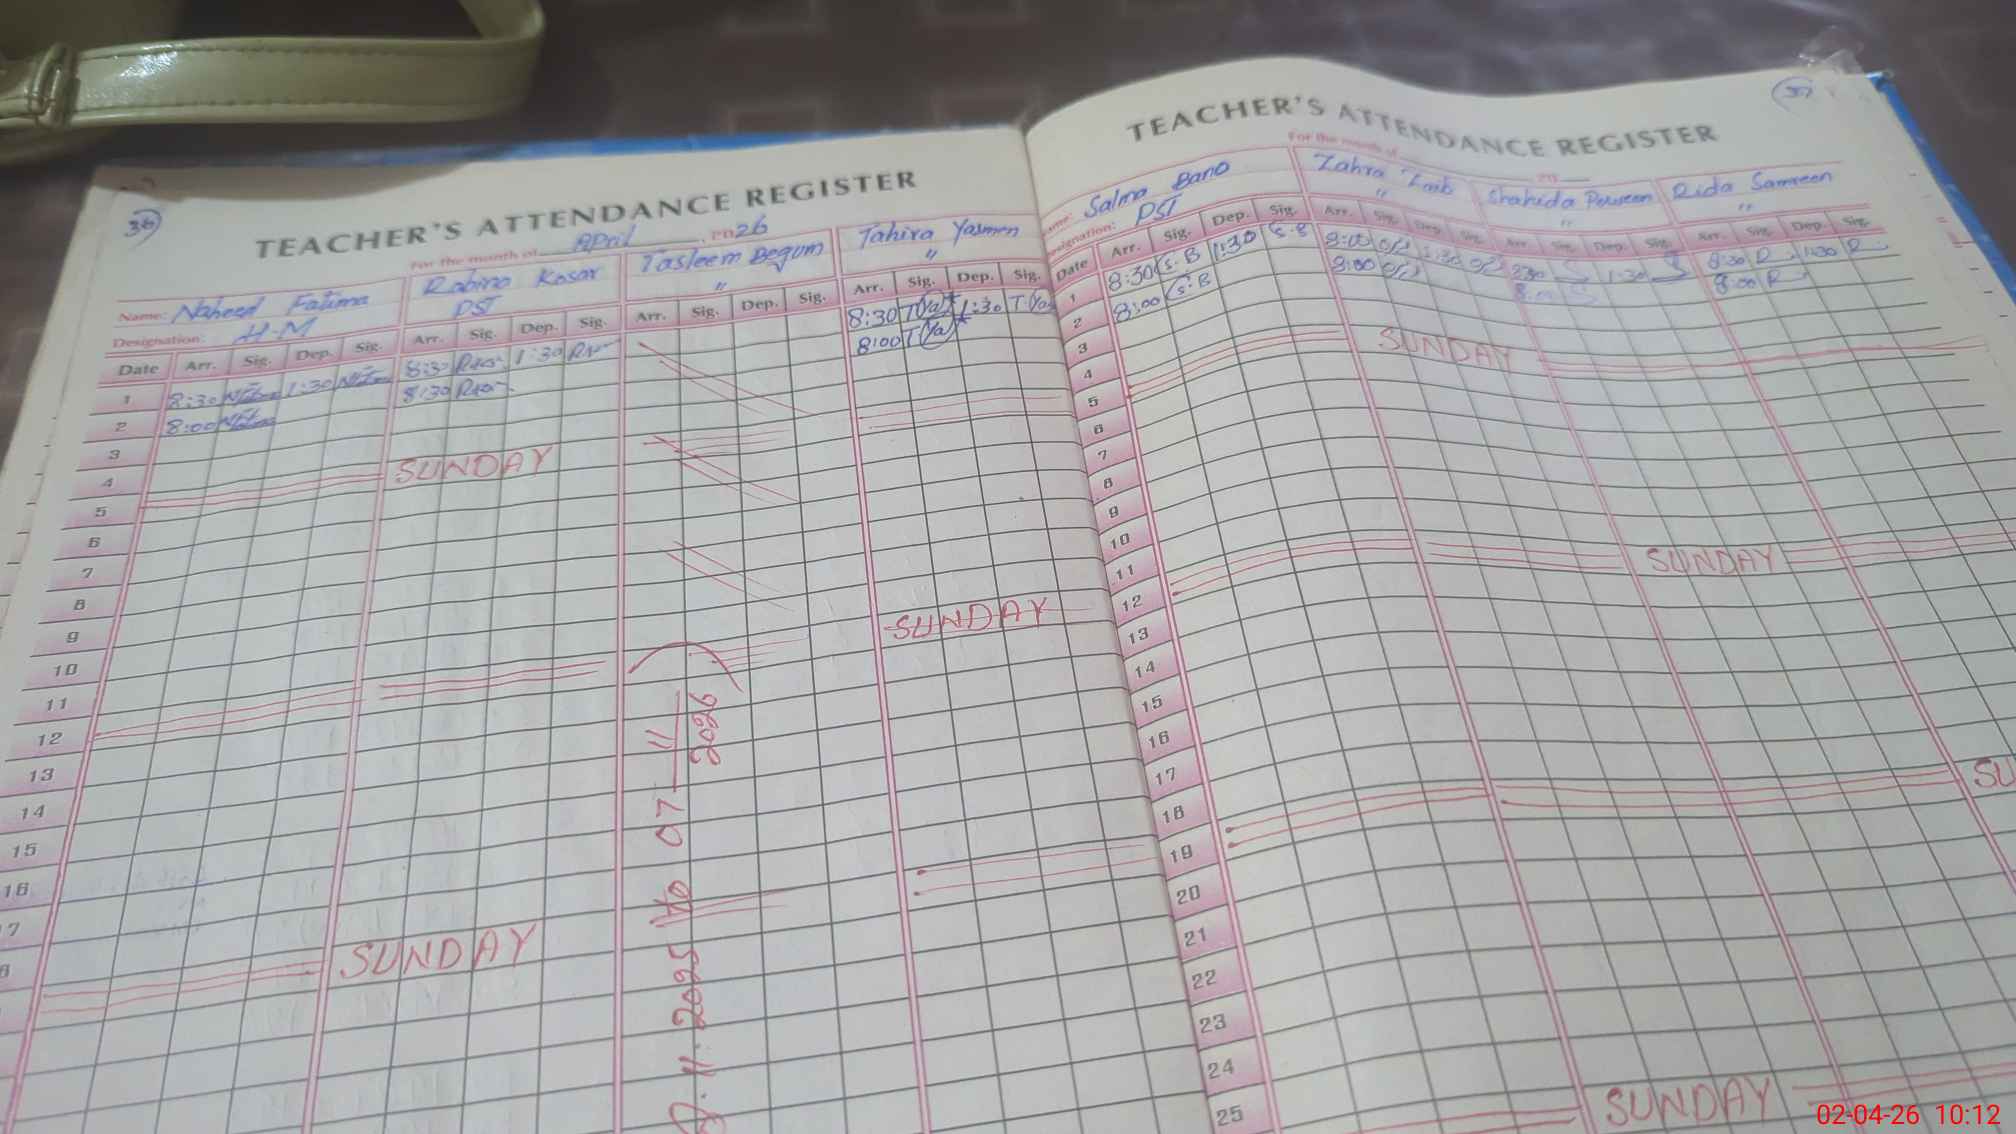 36
TEACHER'S ATTENDANCE REGISTER
For the month of April 2026
Name: Naheed Fatima Rabina Kosar Tasleem Begum Tahira Yasmen
Designation: H-M PST " "
Date Arr. Sig. Dep. Sig. Arr. Sig. Dep. Sig. Arr. Sig. Dep. Sig. Arr. Sig. Dep. Sig.
1 8:30 1:30 8:30 1:30 8:30 T(Ya) 1:30 T(Ya)
2 8:00 8:30 8:00 T(Ya)
3
4 SUNDAY
5
6
7
8
9
10 SUNDAY
11
12
13
14
15
16
17
18 SUNDAY
11-2025 to 07-11-2026
TEACHER'S ATTENDANCE REGISTER
For the month of 20
Name: Salma Bano Zahra Zaib Shahida Perveen Rida Samreen
Designation: PST " " "
Date Arr. Sig. Dep. Sig. Arr. Sig. Dep. Sig. Arr. Sig. Dep. Sig. Arr. Sig. Dep. Sig.
1 8:30 S.B 1:30 S.B 8:00 1:30 1:30 8:30 R 1:30 R
2 8:00 S.B 8:00 8:00 8:00 R
3
4 SUNDAY
5
6
7
8
9
10
11 SUNDAY
12
13
14
15
16
17
18 SU
19
20
21
22
23
24
25 SUNDAY
02-04-26 10:12